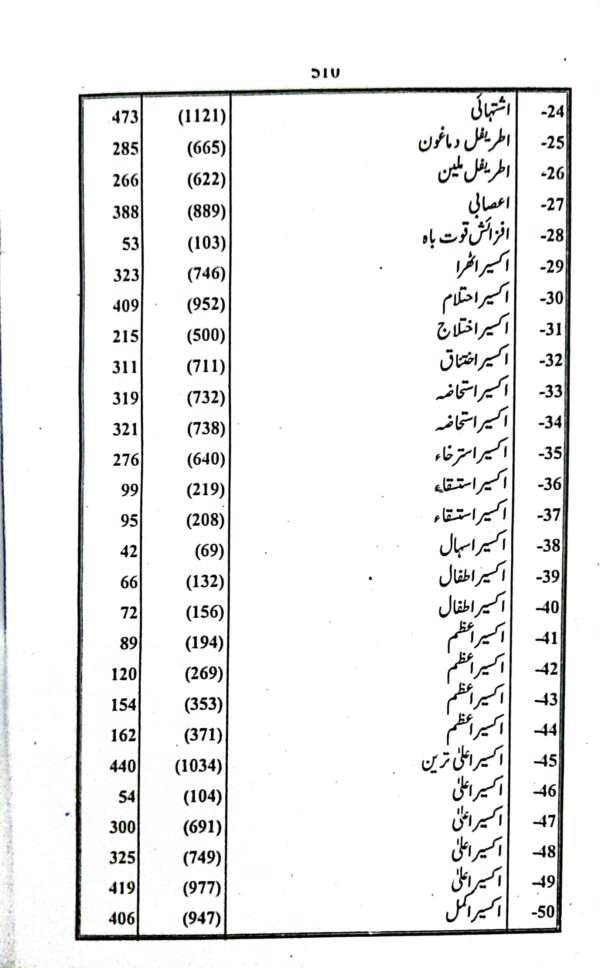 510
24- اشتہائی (1121) 473
25- اطریفل دماغون (665) 285
26- اطریفل ملین (622) 266
27- اعصابی (889) 388
28- افزائش قوت باہ (103) 53
29- اکسیر اٹھرا (746) 323
30- اکسیر احتلام (952) 409
31- اکسیر اختلاج (500) 215
32- اکسیر اختناق (711) 311
33- اکسیر استحاضہ (732) 319
34- اکسیر استحاضہ (738) 321
35- اکسیر استرخاء (640) 276
36- اکسیر استسقاء (219) 99
37- اکسیر استسقاء (208) 95
38- اکسیر اسہال (69) 42
39- اکسیر اطفال (132) 66
40- اکسیر اطفال (156) 72
41- اکسیر اعظم (194) 89
42- اکسیر اعظم (269) 120
43- اکسیر اعظم (353) 154
44- اکسیر اعظم (371) 162
45- اکسیر اعلیٰ ترین (1034) 440
46- اکسیر اعلیٰ (104) 54
47- اکسیر اعلیٰ (691) 300
48- اکسیر اعلیٰ (749) 325
49- اکسیر اعلیٰ (977) 419
50- اکسیر اکمل (947) 406